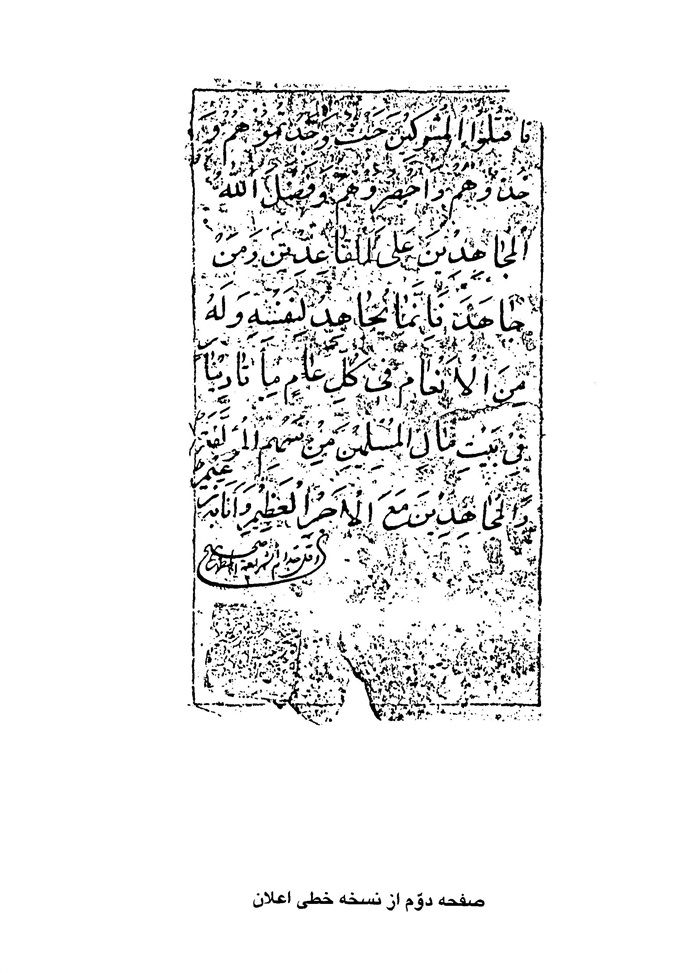 فَاقْتُلُوا الْمُشْرِكِينَ حَيْثُ وَجَدْتُمُوهُمْ وَ
خُذُوهُمْ وَاحْصُرُوهُمْ وَفَضَّلَ اللَّهُ
الْمُجَاهِدِينَ عَلَى الْقَاعِدِينَ وَمَنْ
جَاهَدَ فَإِنَّمَا يُجَاهِدُ لِنَفْسِهِ وَلَهُ
مِنَ الْاَنْعَامِ فِي كُلِّ عَامٍ
فِي بَيْتِ مَالِ الْمُسْلِمِينَ مِنْ سَهْمِ
وَالْمُجَاهِدِينَ مَعَ الْاَجْرِ الْعَظِيمِ وَاَنَا
اقل خدام الشريعة المطهرة
صفحه دوّم از نسخه خطی اعلان